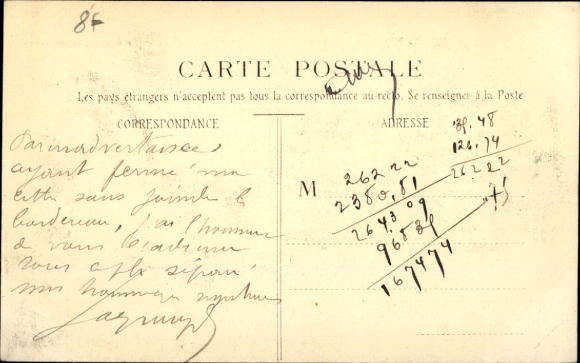 8f
CARTE POSTALE
Les pays étrangers n'acceptent pas tous la correspondance au recto. Se renseigner à la Poste
CORRESPONDANCE
Par inadvertance
ayant fermé ma
lettre sans joindre le
bordereau, j'ai l'honneur
de vous l'adresser
sous pli séparé
mes hommages
ADRESSE
M
262 22
2380,81
2643 09
167474
126.74
262 22